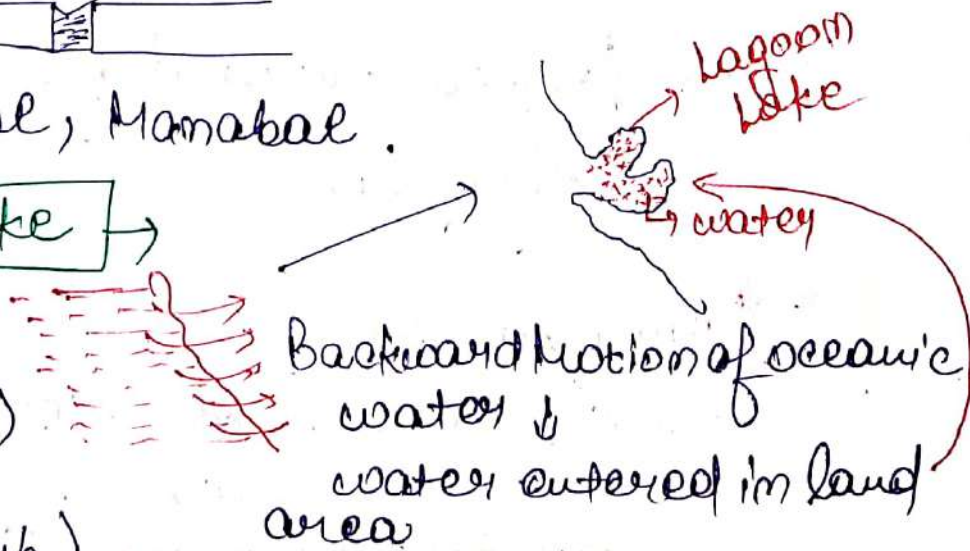 Lagoon
Lake
Manabal.
water
Backward Motion of oceanic
water ↓
water entered in land
area